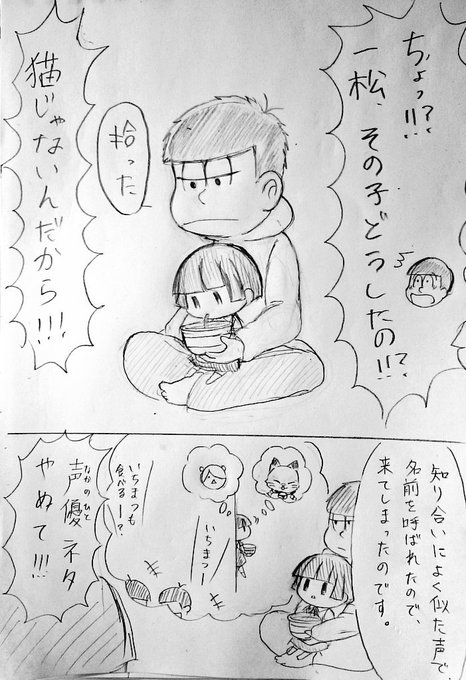 ちょっ!!?
一松、その子どうしたの!!?
拾った
猫じゃないんだから!!!
知り合いによく似た声で
名前を呼ばれたので、
来てしまったのです。
いちまつー
いちまつも
食べるー?
なかのひと
声優ネタ
やめて!!!